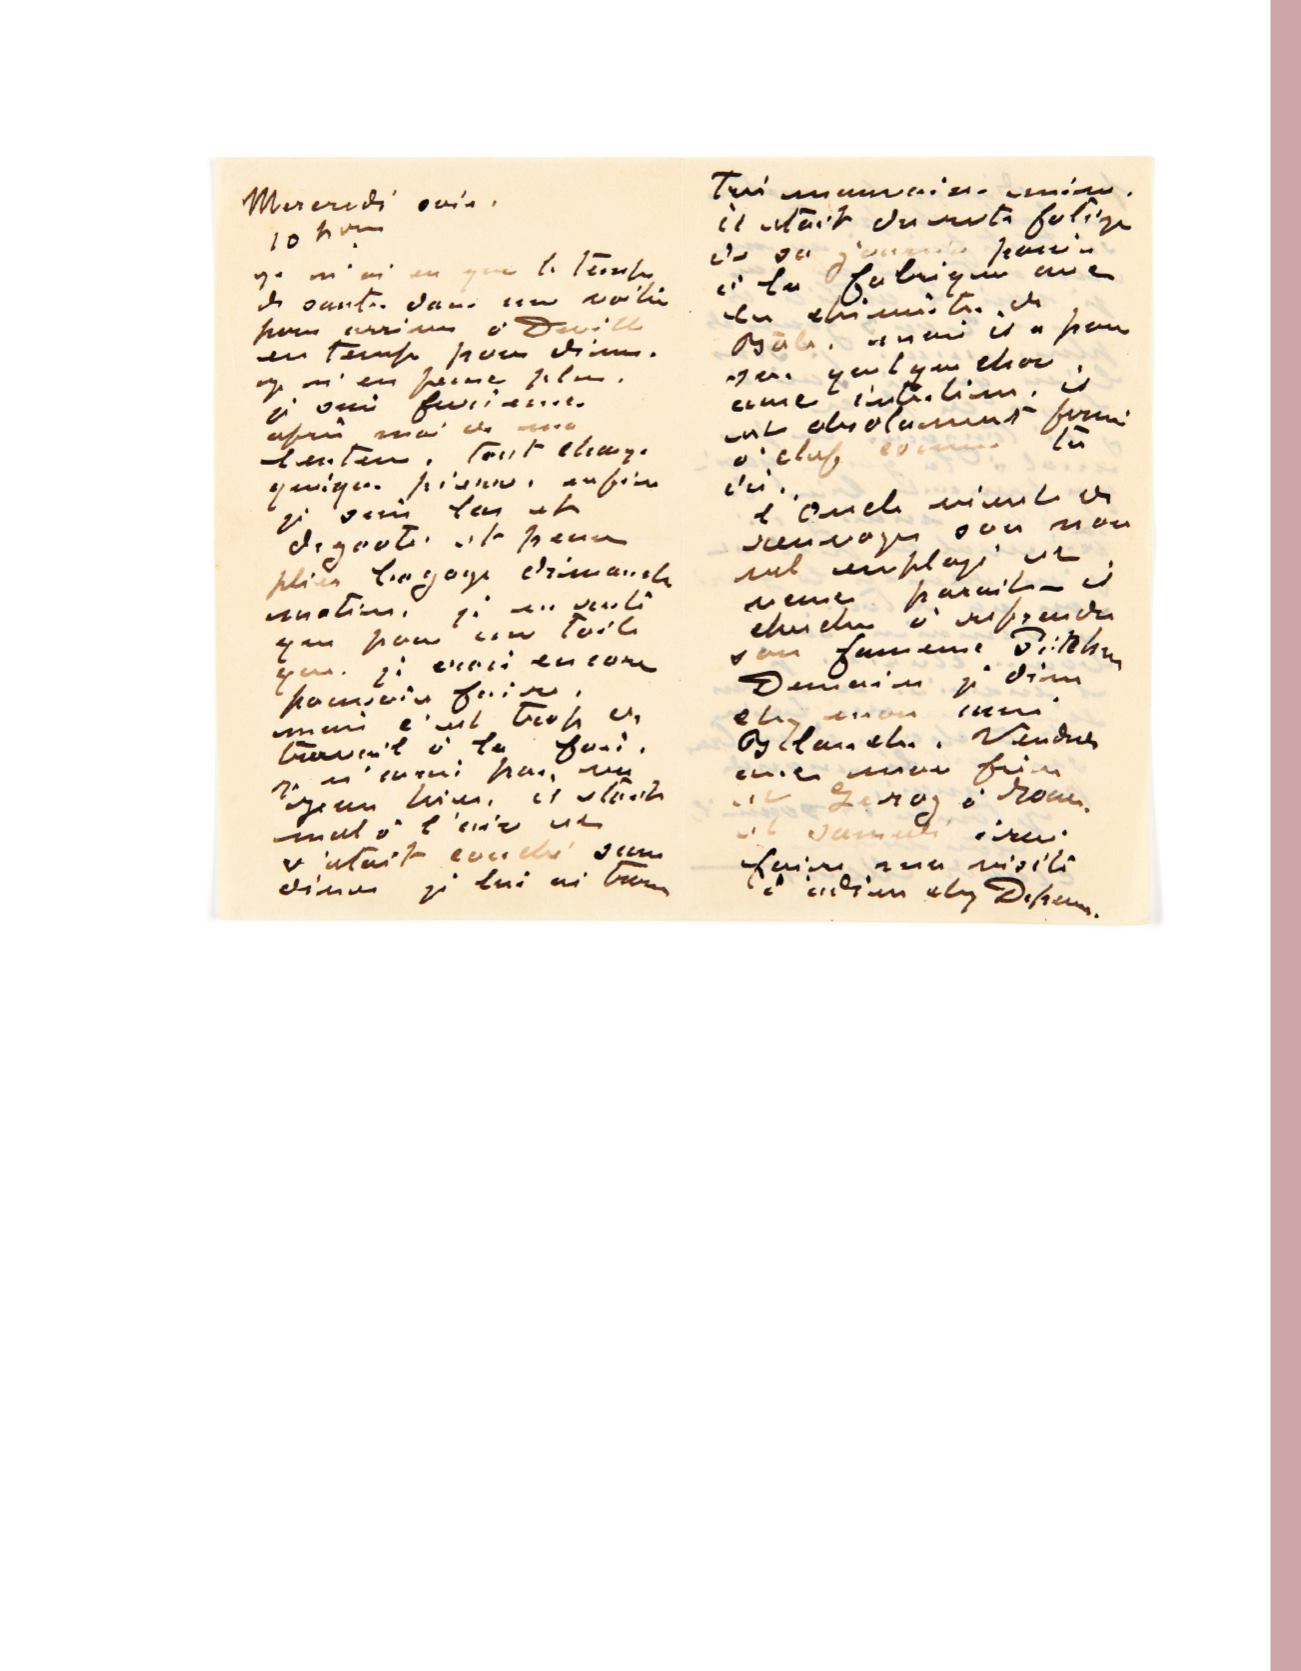 Mercredi soir.
10 h
je n'ai eu que le temps
de sauter dans une voiture
pour arriver à Deville
en temps pour diner.
je n'en peux plus.
je suis furieux
après moi de ma
lenteur. Tout change
quique Pissarro. enfin
je suis las et
degouté. et pense
plier bagage dimanche
matin. je ne
que pour une toile
que je crois encore
pouvoir faire.
mais c'est trop de
travail à la fois.
je n'avais pas vu
Jean hier. il était
mal à l'aise et
s'était couché sans
diner je lui ai trouvé
très mauvaise mine.
il était du reste fatigué
de sa journée passée
à la fabrique avec
les chimistes de
Bâle. mais il a pour
sur quelque chose
aux intestins. il
est absolument fourni
à clefs comme tu
dis.
l'Oncle vient de
renvoyer son nou
vel employé et
veux paraitre il
cherche à reprendre
son fameux
Demain je dine
chez mon ami
Blanche. Vendredi
avec mon frère
et Geffroy à Rouen.
et samedi irai
faire ma visite
d'adieu chez Depeaux.